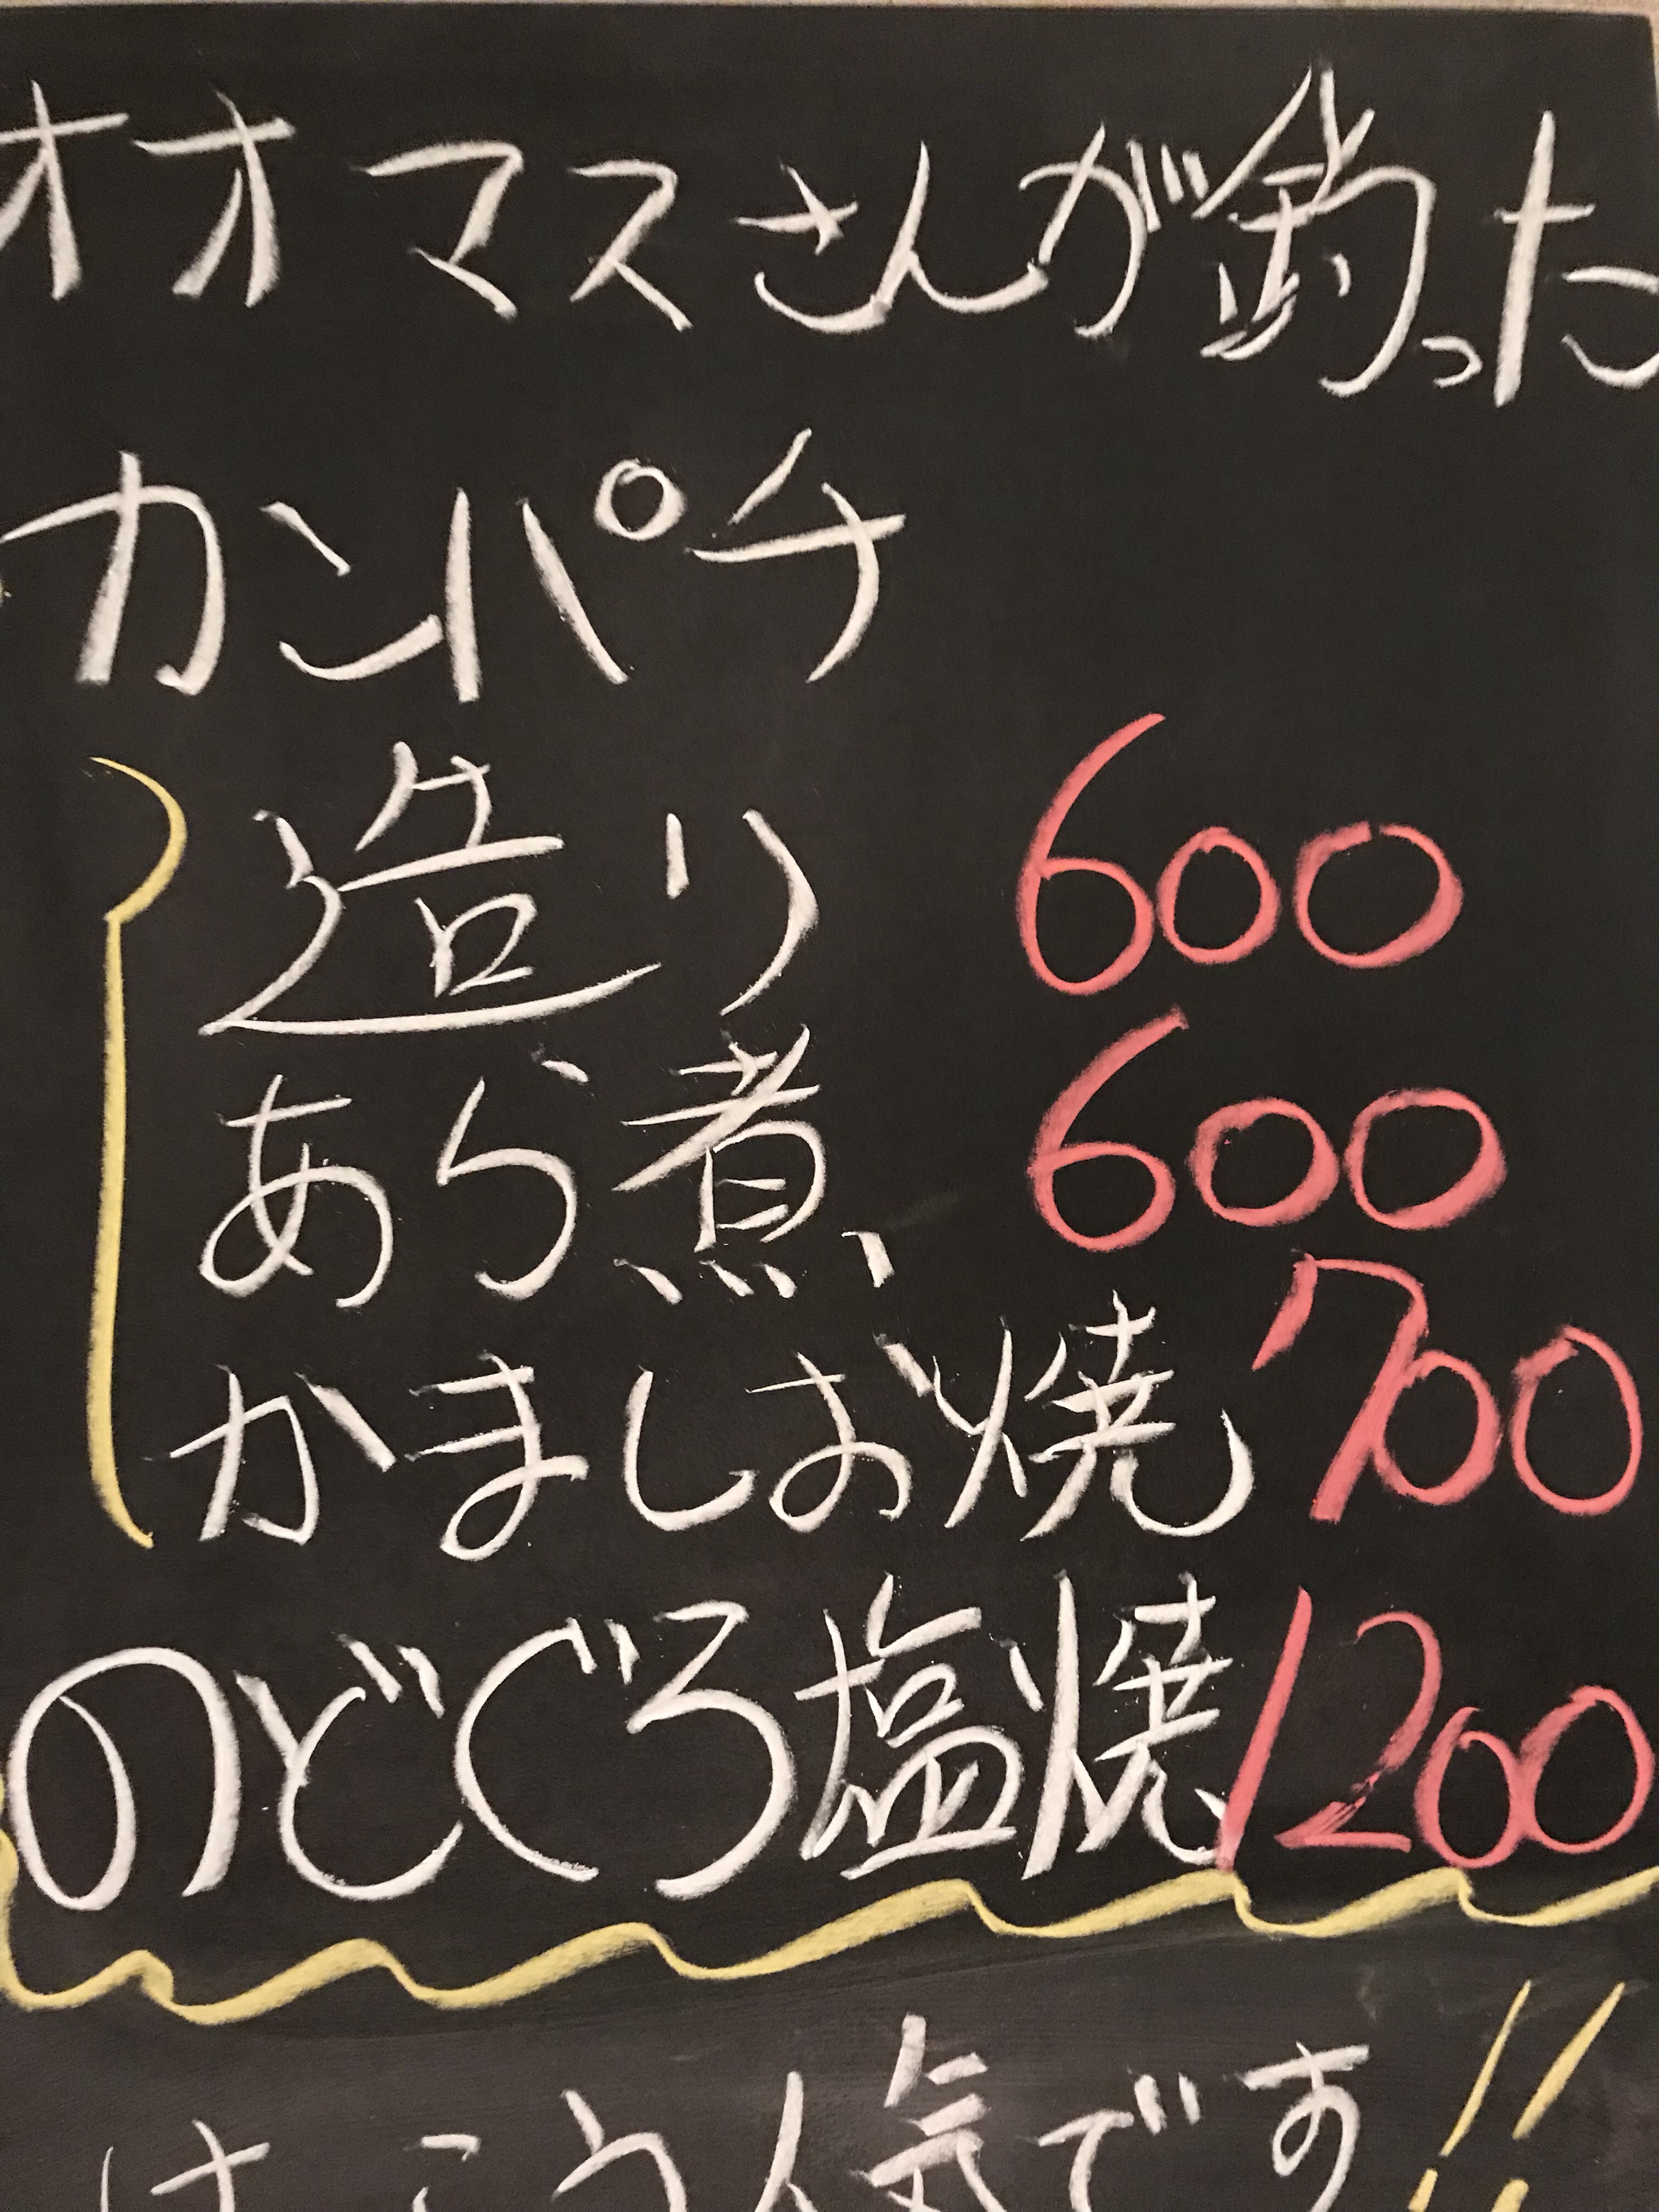 オオマスさんが釣った
カンパチ
造り 600
あら煮、 600
かましお焼 700
のどぐろ塩焼 1200
けっこう人気です!!